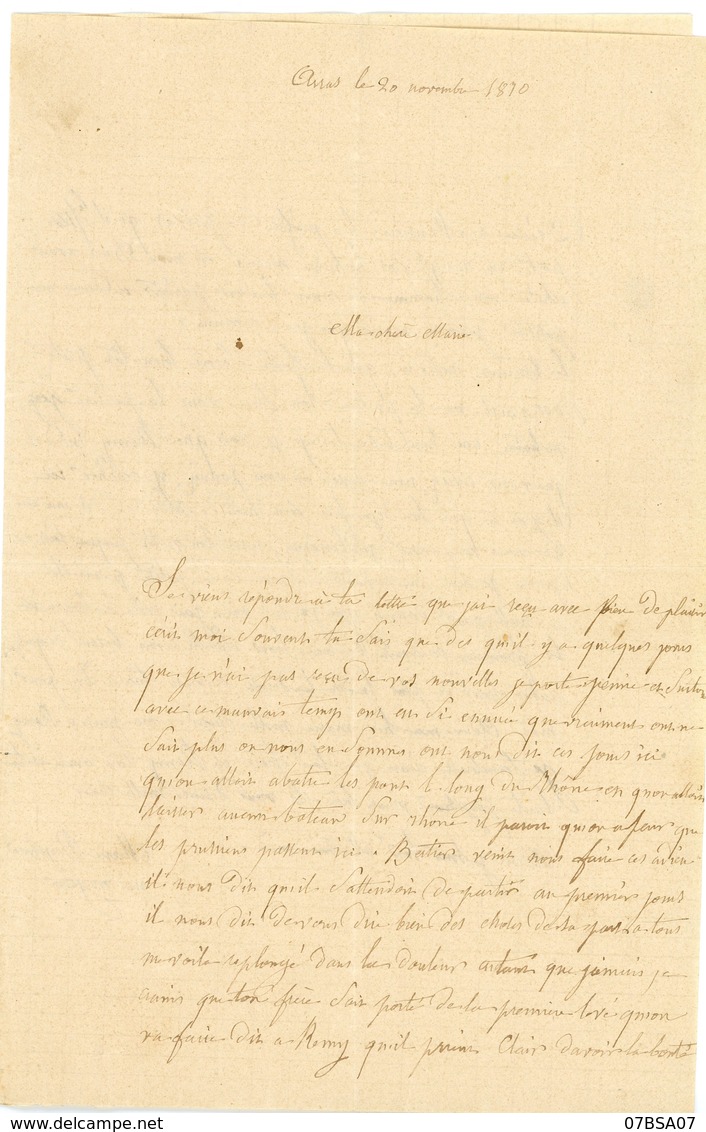 Arras le 20 novembre 1870
Ma chère Marie
Je viens répondre à ta lettre que jai reçu avec bien De plaisir
écrit moi Souvent tu Sais que des quil y a quelques jours
que je n'ai pas reçu De vos nouvelles je porte peinne et Surtou
avec ce mauvais temps ont est Si ennuié que vraiment ont ne
Sait plus ou nous en Sommes ont nous dit ces jours ici
quon alloit abatre les pont le long du Rhône et quon alloit
laisser aucun bateau Sur rhône il paroit quon a peur que
les prussiens passent ici. Batis vient nous faire ces adieu
il nous dit quil Sattendoit De partir au premier jours
il nous dit De vous Dire bien des choses de sa part a tous
me voila replongé Dans la douleur autant que jamais je
crains que ton frère Soit porté de la première levé quon
va faire dit a Remy quil prévient Clair Davoir la bonté
07BSA07